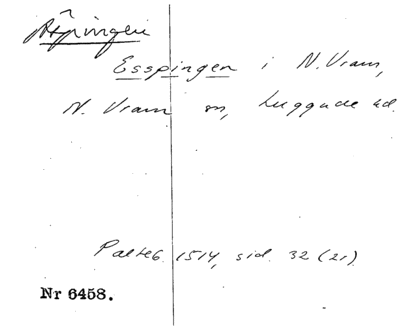 Äspingen
Esspingen i N. Vram,
N. Vram sn, Luggude hd.
Palteb. 1514, sid. 32 (21).
Nr 6458.